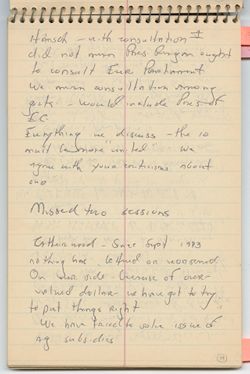 Hänsch - with consultation I
did not mean Pres Reagan ought
to consult Eur Parliament
We mean consultation among
govts - would include Pres of
EC
Everything we discuss - the 10
must be more "united". We
agree with your criticisms about
Missed two sessions
Catherwood - Since Sept 1983
nothing has
On our side - because of over-
valued dollar - we have got to try
to put things right
We have to solve issue of
ag subsidies